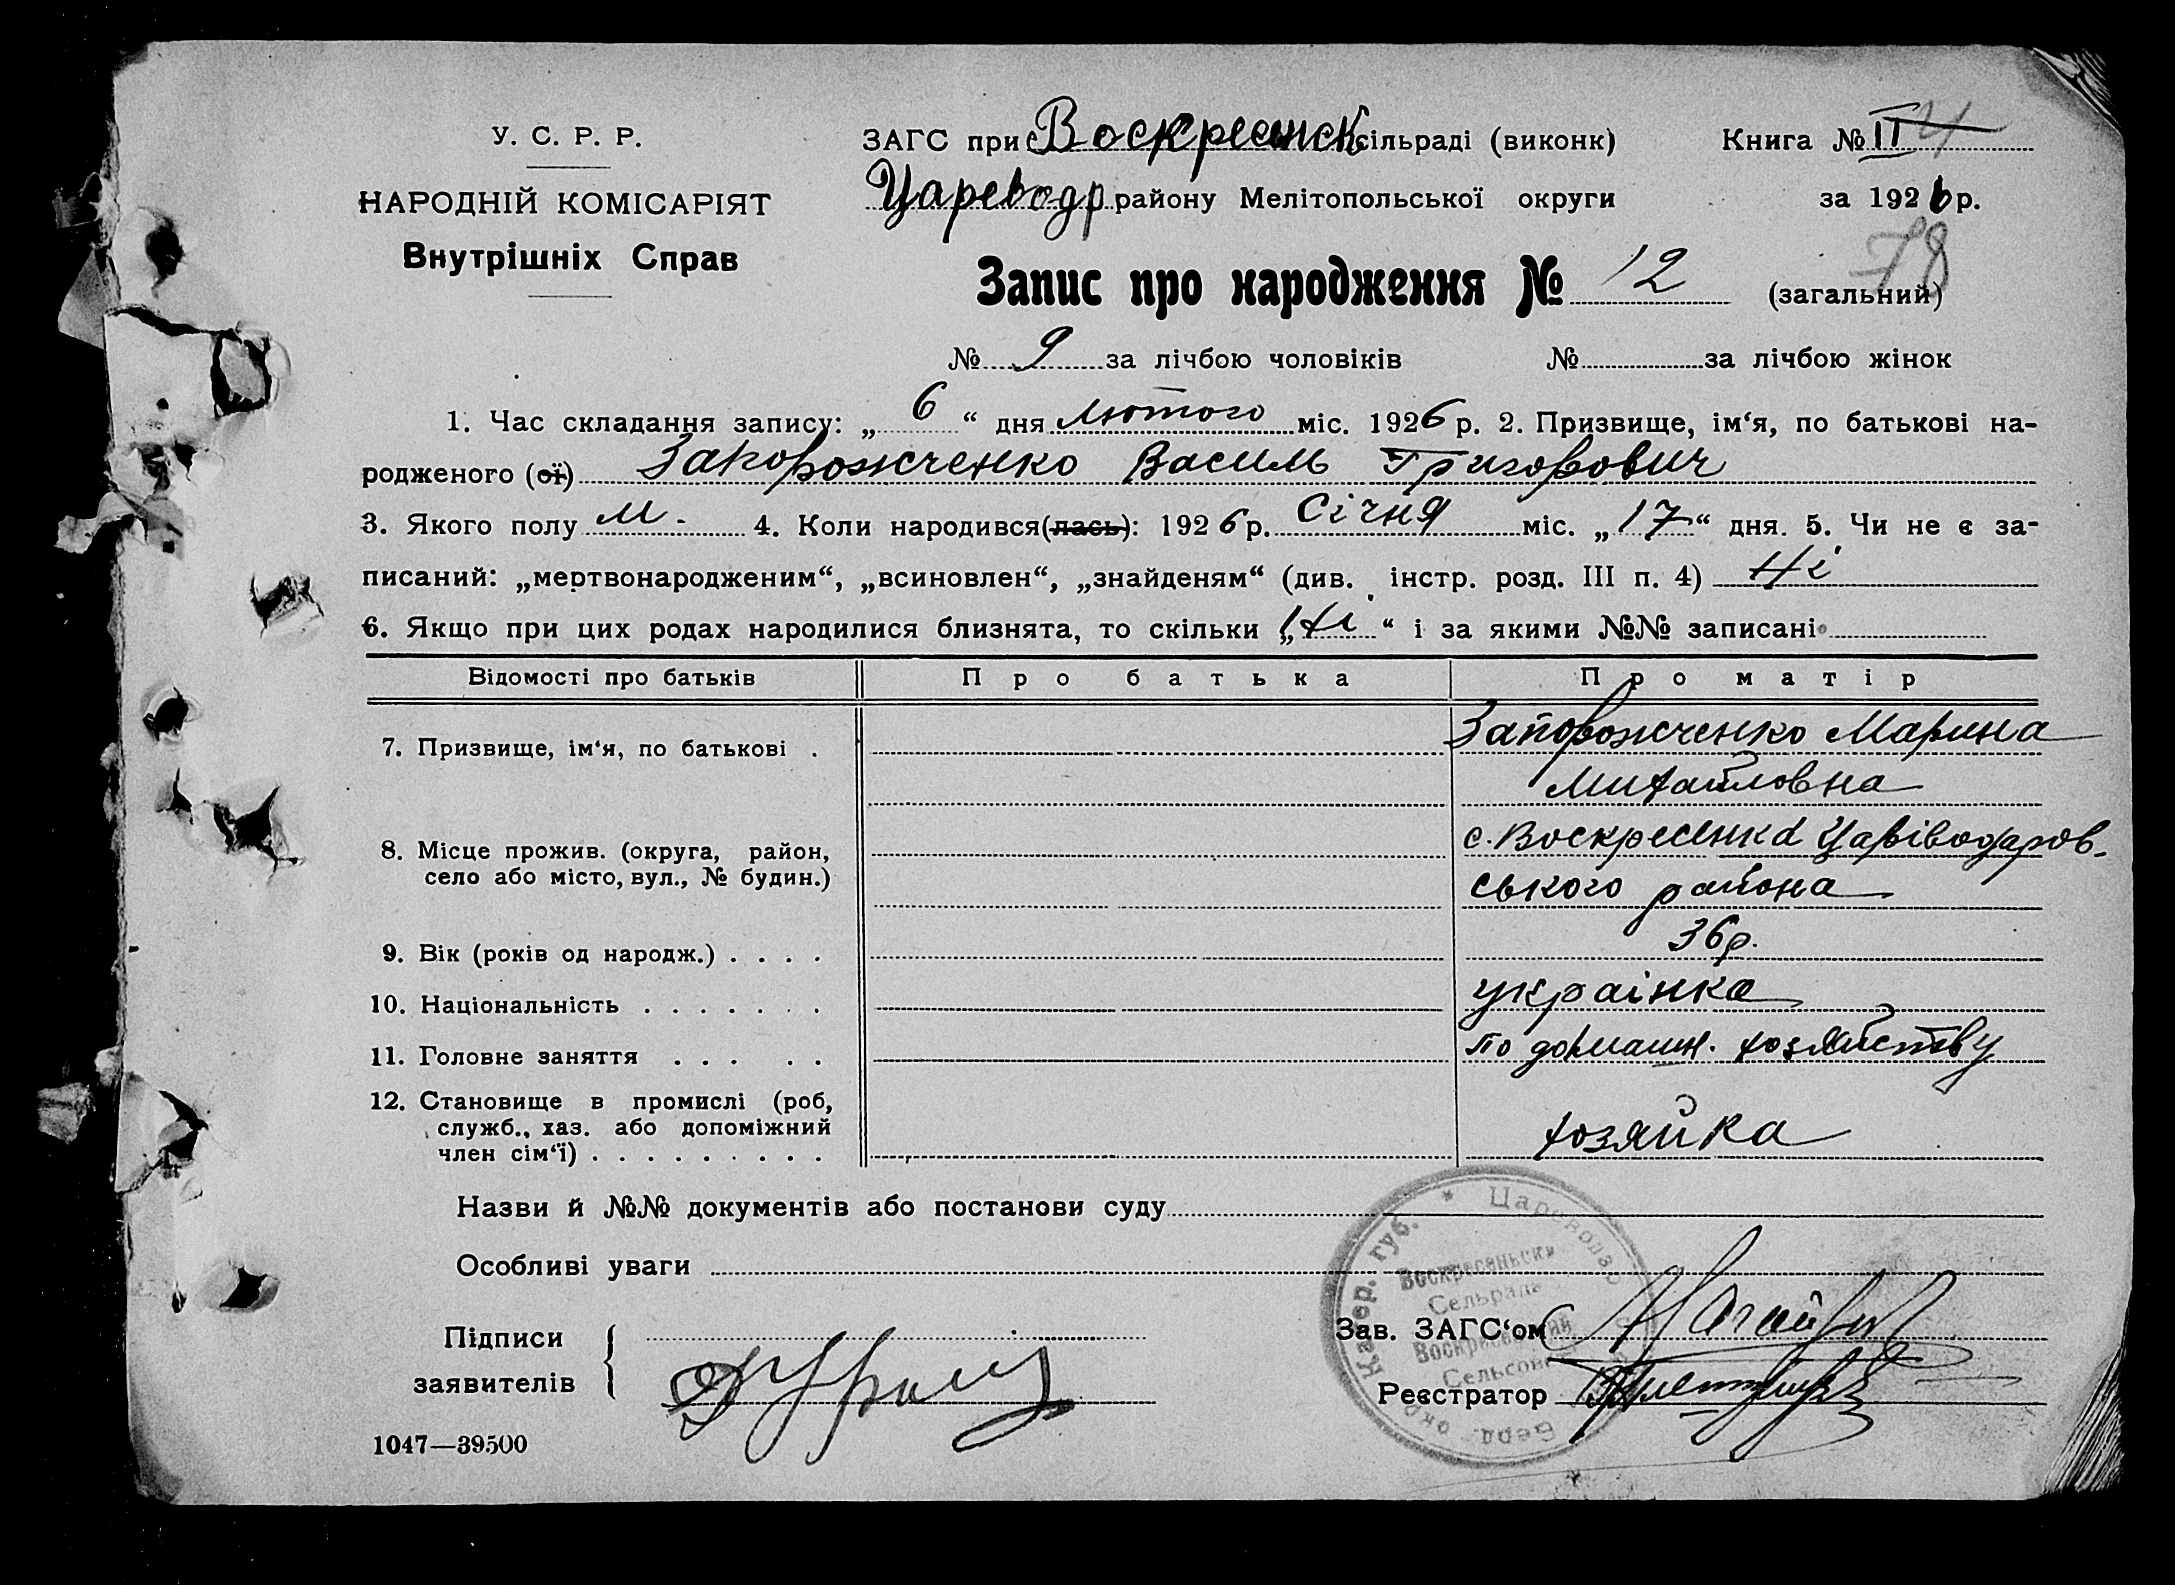 У. С. Р. Р.
НАРОДНІЙ КОМІСАРІЯТ
Внутрішніх Справ
ЗАГС при Воскресенск сільраді (виконк)
Цареводр району Мелітопольської округи
Книга № II 4
за 1926 р.
78
Запис про народження № 12 (загальний)
№ 9 за лічбою чоловіків № за лічбою жінок
1. Час складання запису: „6“ дня лютого міс. 1926 р. 2. Призвище, ім‘я, по батькові на-
родженого (ої) Запорожченко Василь Григорович
3. Якого полу м. 4. Коли народився(лась): 1926 р. Січня міс. „17“ дня. 5. Чи не є за-
писаний: „мертвонародженим“, „всиновлен“, „знайденям“ (див. інстр. розд. III п. 4) Ні
6. Якщо при цих родах народилися близнята, то скільки „Ні“ і за якими №№ записані
Відомості про батьків Про батька Про матір
7. Призвище, ім‘я, по батькові . Запорожченко Марина
Михайловна
8. Місце прожив. (округа, район, с. Воскресенка Царіводаров-
село або місто, вул., № будин.) ського района
9. Вік (років од народж.) . . . . 36 р.
10. Національність . . . . . . . українка
11. Головне заняття . . . . . По домашн. хозяйству
12. Становище в промислі (роб,
служб., хаз. або допоміжний хозяйка
член сім‘ї) . . . . . . . . .
Назви й №№ документів або постанови суду
Особливі уваги
Підписи
заявителів
Зав. ЗАГС‘ом
Реєстратор
Катер. губ. * Царевод
Воскресеньска
Сельрада
Воскресенский
Сельсовет
Берд. окр
1047—39500